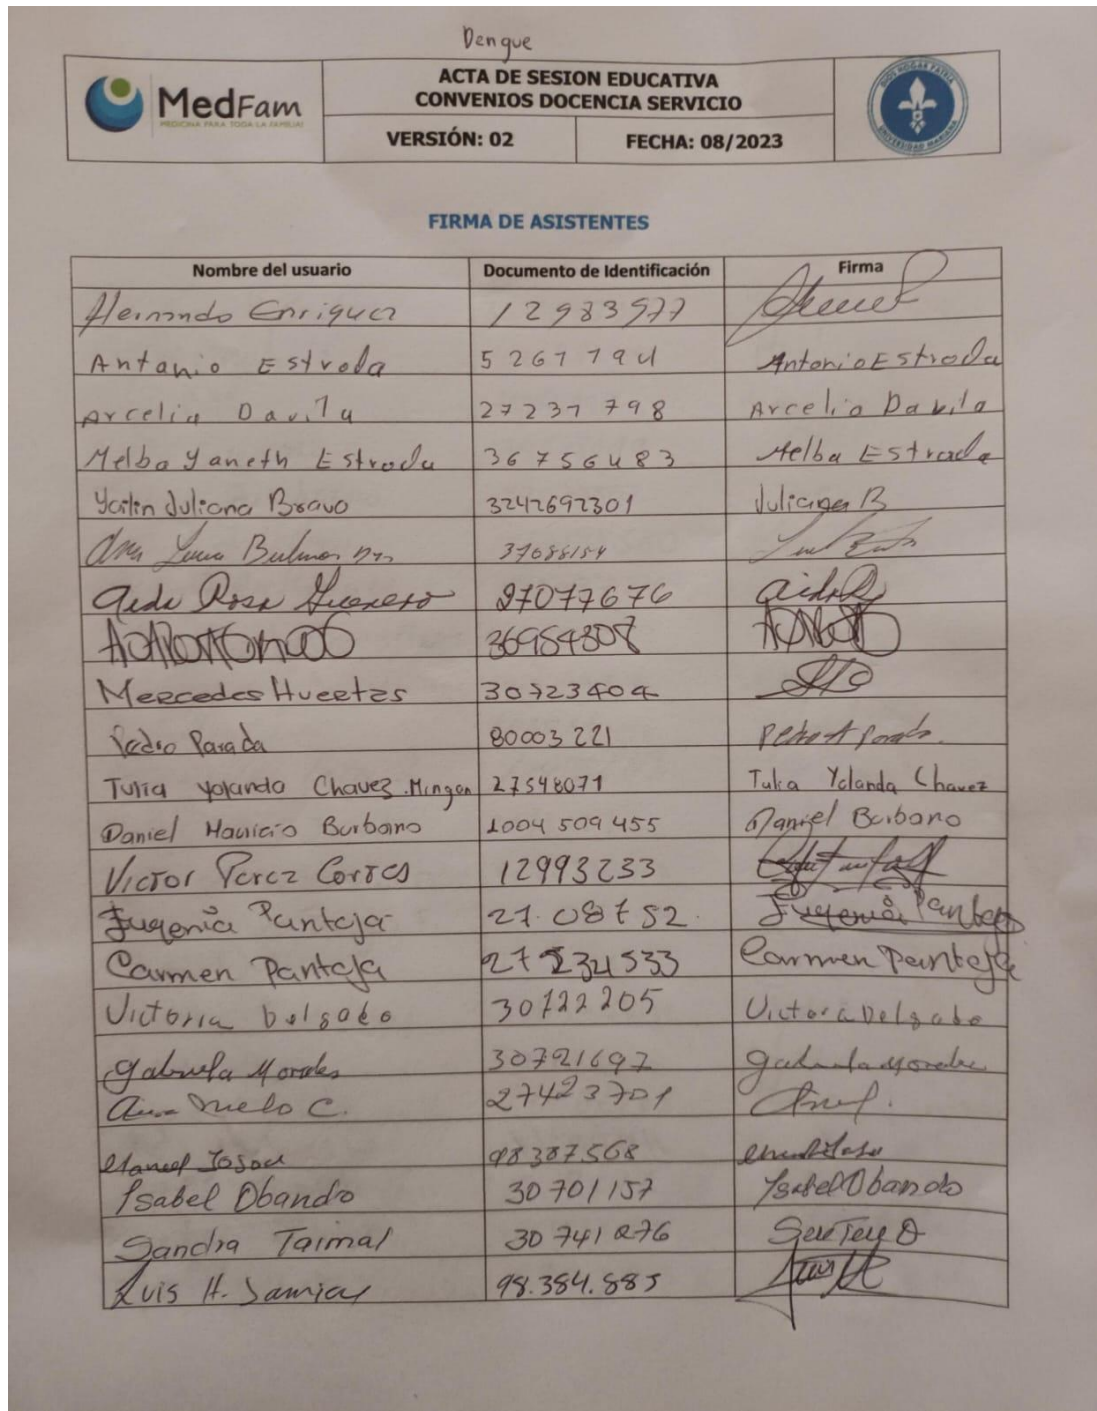 Dengue
MedFam
MEDICINA PARA TODA LA FAMILIA!
ACTA DE SESION EDUCATIVA
CONVENIOS DOCENCIA SERVICIO
VERSIÓN: 02 FECHA: 08/2023
DIOS HOGAR PATRIA
UNIVERSIDAD MARIANA
FIRMA DE ASISTENTES
Nombre del usuario Documento de Identificación Firma
Hernando Enriquez 12983977
Antonio Estrada 5261794 Antonio Estrada
Arcelia Davila 27231798 Arcelia Davila
Melba Yaneth Estrada 36756483 Melba Estrada
Yoilin Juliana Bravo 3242692301 Juliana B
Ana 37088154
Aida Rosa Guerrero 27077676 Aida R
36954308
Mercedes Huertas 30723404
Pedro Parada 80003221 Pedro A Parada.
Tulia Yolando Chavez Mingan 27548071 Tulia Yolanda Chavez
Daniel Mauricio Burbano 1004 509 455 Daniel Burbano
Victor Perez Cortes 12993233
Eugenia Pantoja 27.08752. Eugenia Pantoja
Carmen Pantoja 27234533 Carmen Pantoja
Victoria Delgado 30722205 Victoria Delgado
Gabriela Morales 30721697 Gabriela Morales
Melo C. 27423701
Manuel 98387568
Isabel Obando 30701157 Isabel Obando
Sandra Taimal 30741276
Luis H. 98.384.885